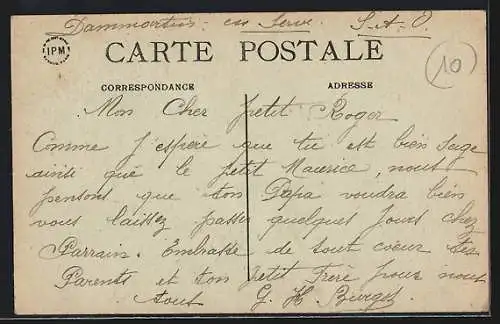 Dammartin en Serve S.&O.
IPM
CARTE POSTALE
10
CORRESPONDANCE
ADRESSE
Mon Cher petit Roger
Comme J'espère que tu est bien sage
ainsi que le petit Maurice, nous
pensons que ton Papa voudra bien
vous laissez passer quelques jours chez
Parrain. Embrasse de tout coeur tes
Parents et ton petit Frère pour nous
tous G. H Burget